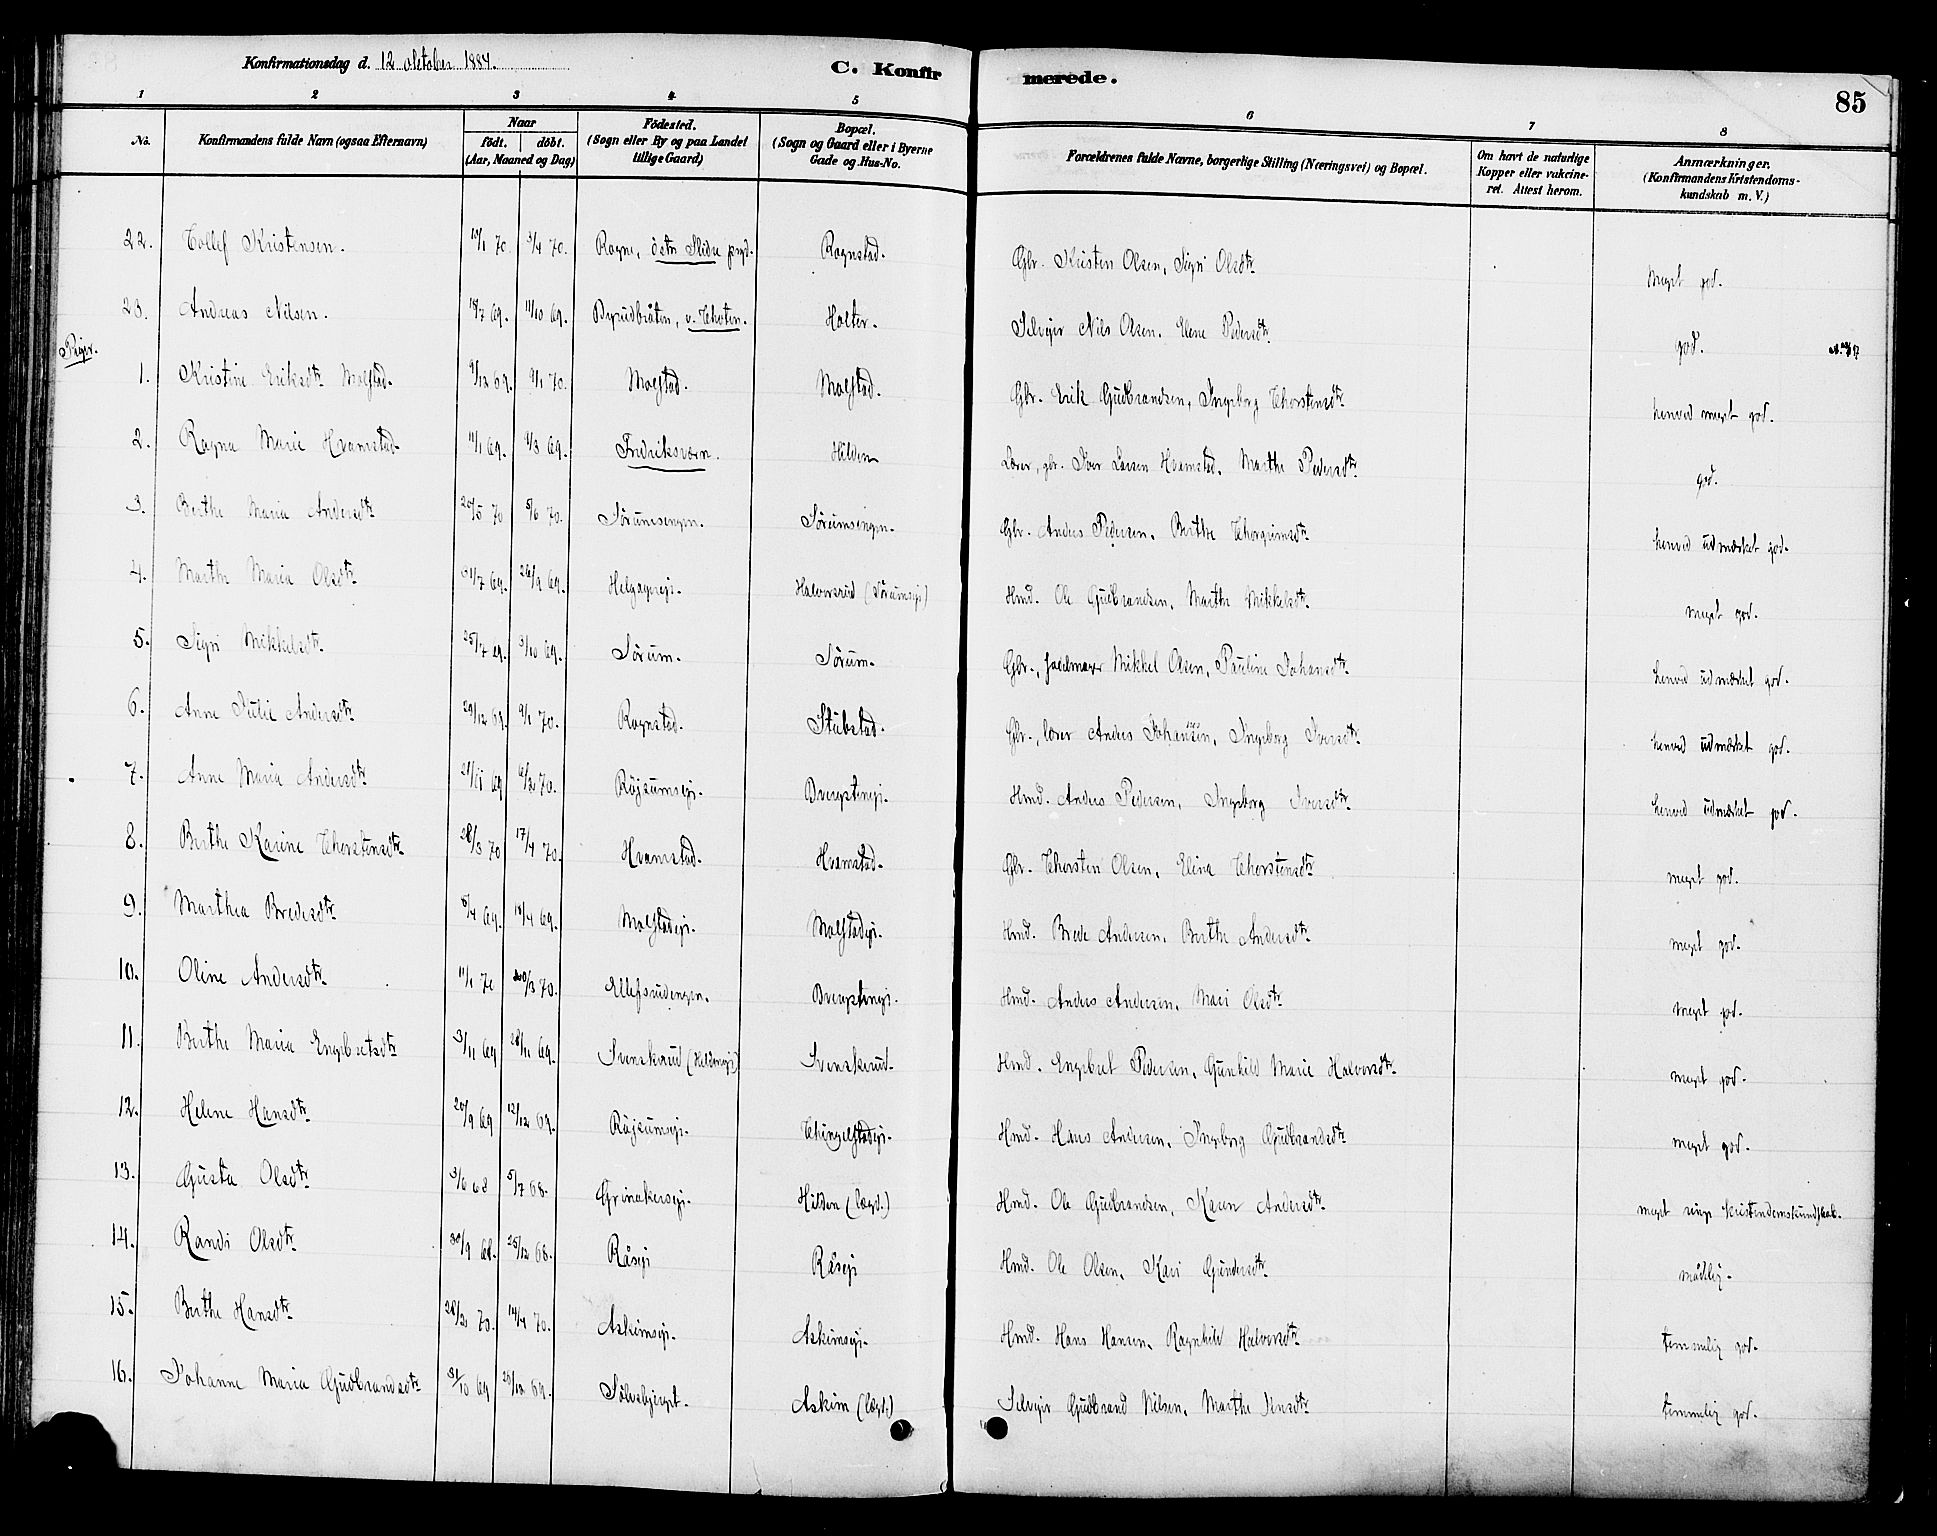 Konfirmationsdag d. 12 oktober 1884.
C. Konfirmerede.
85
1 2 3 4 5 6 7 8
No. Konfirmandens fulde Navn (ogsaa Efternavn) Naar födt. döbt. (Aar, Maaned og Dag) Födested. (Sogn eller By og paa Landet tillige Gaard) Bopæl. (Sogn og Gaard eller i Byerne Gade og Hus-No. Forældrenes fulde Navne, borgerlige Stilling (Næringsvei) og Bopæl. Om havt de naturlige Kopper eller vakcineret. Attest herom. Anmærkninger. (Konfirmandens Kristendomskundskab m. V.)
22. Tollef Kristensen. 13/1 70. 3/4 70. Rogne, östr Slidre prgd. Rognstad. Gbr. Kristen Olsen, Sigri Olsdtr meget god.
23. Andreas Nilsen. 18/7 69. 11/10 69. Byrudbråten, v. Thoten. Holter. Selvejer Nils Olsen. Elene Pedersdtr god.
Piger.
1. Kristine Eriksdtr Molstad. 9/12 69. 9/1 70. Molstad. Molstad. Gbr. Erik Gudbrandsen, Ingeborg Thorstensdtr henved meget god.
2. Ragna Marie Hvamstad. 11/1 69. 9/3 69. Fredriksværn. Hilden Lærer, gbr. Iver Larsen Hvamstad, Marthe Pedersdtr god.
3. Berthe Maria Andersdtr 20/5 70 5/6 70. Sørumsengen. Sørumsengen. Gbr. Anders Pedersen, Berthe Thorgrimsdtr henved udmærket god.
4. Marthe Maria Olsdtr 31/7 69. 26/9 69. Helgagerejr. Halvorsrud (Sørumsejr) Hmd. Ole Gudbrandsen, Marthe Mikkelsdtr meget god.
5. Sigri Mikkelsdtr 25/7 69. 3/10 69. Sörum. Sörum. Gbr., sadelmager Mikkel Olsen, Pauline Johansdtr henved udmærket god.
6. Anne Julie Andersdtr 29/12 69. 9/1 70. Rognstad. Stubstad. Gbr., lærer Anders Johansen, Ingeborg Iversdtr henved udmærket god.
7. Anne Maria Andersdtr 21/11 69 6/2 70. Röjsumsejr. Dvergstenejr. Hmd. Anders Pedersen, Ingeborg Iversdtr henved udmærket god.
8. Berthe Karine Thorstensdtr 28/3 70 17/4 70. Hvamstad. Hvamstad. Gbr. Thorsten Olsen, Elina Thorstensdtr meget god.
9. Marthea Bredesdtr 8/4 69. 18/4 69. Molstadejr. Molstadejr. Hmd. Brede Andersen, Berthe Andersdtr meget god.
10. Oline Andersdtr 11/1 70 20/3 70. Ellefsrudengen. Dvergstenejr. Hmd. Anders Andersen, Mari Olsdtr meget god.
11. Berthe Maria Engebretsdtr 3/11 69 28/11 69. Svenskerud (Hildenejr) Svenskerud. Hmd. Engebret Pedersen, Gunhild Marie Halvorsdtr meget god.
12. Helene Hansdtr 20/9 69 12/12 69. Röjsumsejr. Thingelstadejr. Hmd. Hans Andersen, Ingeborg Gudbrandsdtr meget god.
13. Gusta Olsdtr 3/6 68 5/7 68. Grinakersejr. Hilden (lægd.) Hmd. Ole Gudbrandsen, Karen Andersdtr meget ringe kristendomskundskab.
14. Randi Olsdtr 30/9 68. 25/12 68. Råsejr Råsejr Hmd. Ole Olsen, Kari Gundersdtr mådelig.
15. Berthe Hansdtr 28/2 70. 14/4 70. Askimsejr. Askimsejr. Hmd. Hans Hansen, Ragnhild Halvorsdtr temmelig god.
16. Johanne Maria Gudbrandsdtr 31/10 69 26/12 69. Sölvsbjerget. Askim (lægd.) Selvejer Gudbrand Nilsen, Marthe Jensdtr temmelig god.